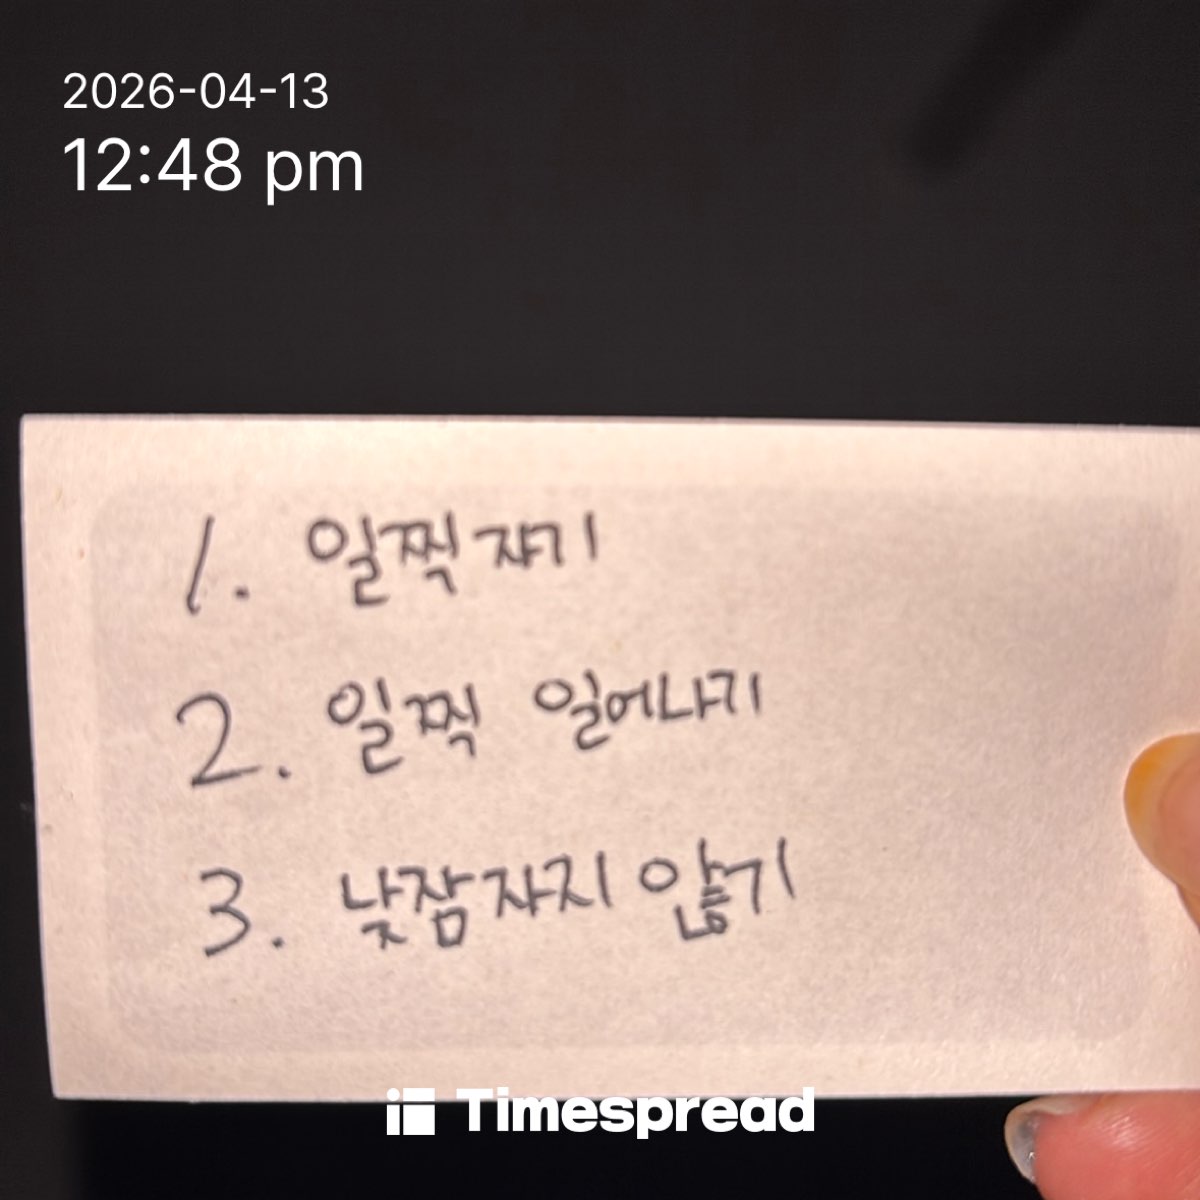 2026-04-13
12:48 pm
1. 일찍 자기
2. 일찍 일어나기
3. 낮잠 자지 않기
Timespread